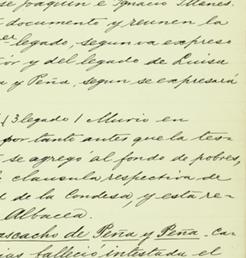 se Joaquin é Ignacio Illanes.
documento y reunen la
legado, segun va expreso
ior y del legado de Luisa
a y Peña, segun se expresará
(3 legado) Murió en
por tanto antes que la tes-
se agregó al fondo de pobres,
clausula respectiva de
d de la Condesa y esta re-
Albacea.
ascacho de Peña y Peña. Ca-
jas falleció intestada el